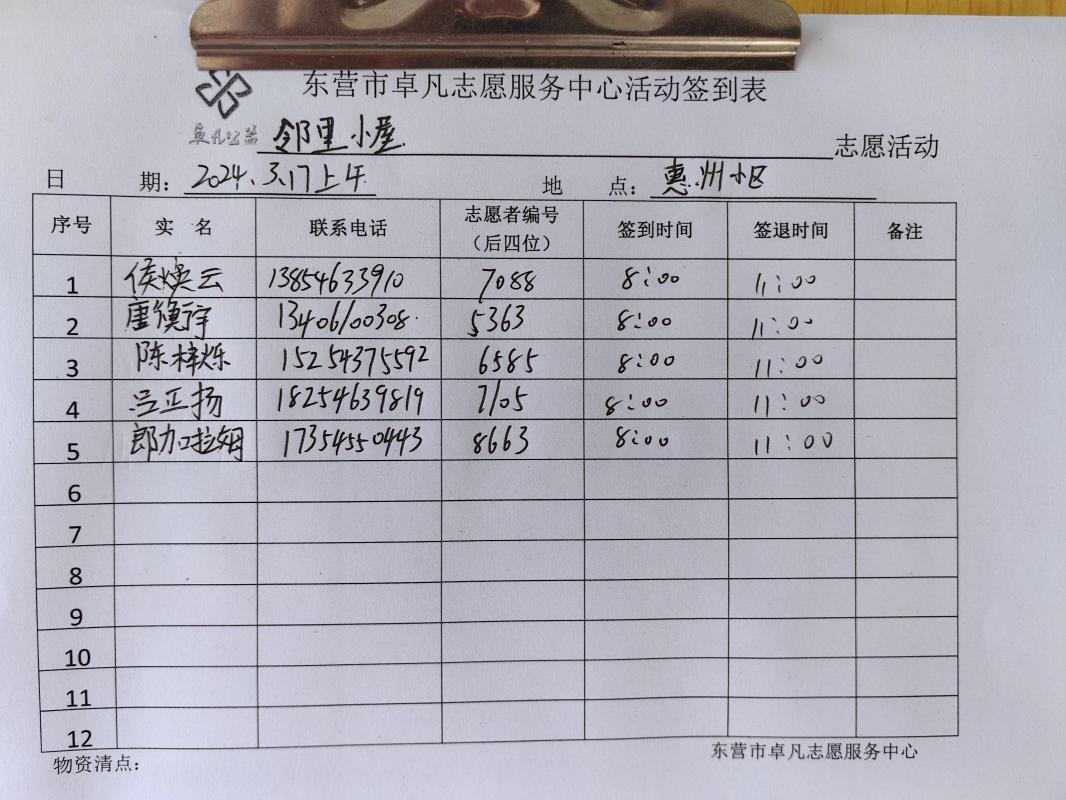 东营市卓凡志愿服务中心活动签到表
卓凡公益 邻里小屋 志愿活动
日 期：2024.3.17上午 地 点：惠州小区
序号 实 名 联系电话 志愿者编号（后四位） 签到时间 签退时间 备注
1 侯焕云 13854633910 7088 8:00 11:00
2 唐衡宇 13406100308 5363 8:00 11:00
3 陈梓烁 15254375592 6585 8:00 11:00
4 吕正扬 18254639819 7105 8:00 11:00
5 郎加拉姆 17354550443 8663 8:00 11:00
6
7
8
9
10
11
12
物资清点： 东营市卓凡志愿服务中心